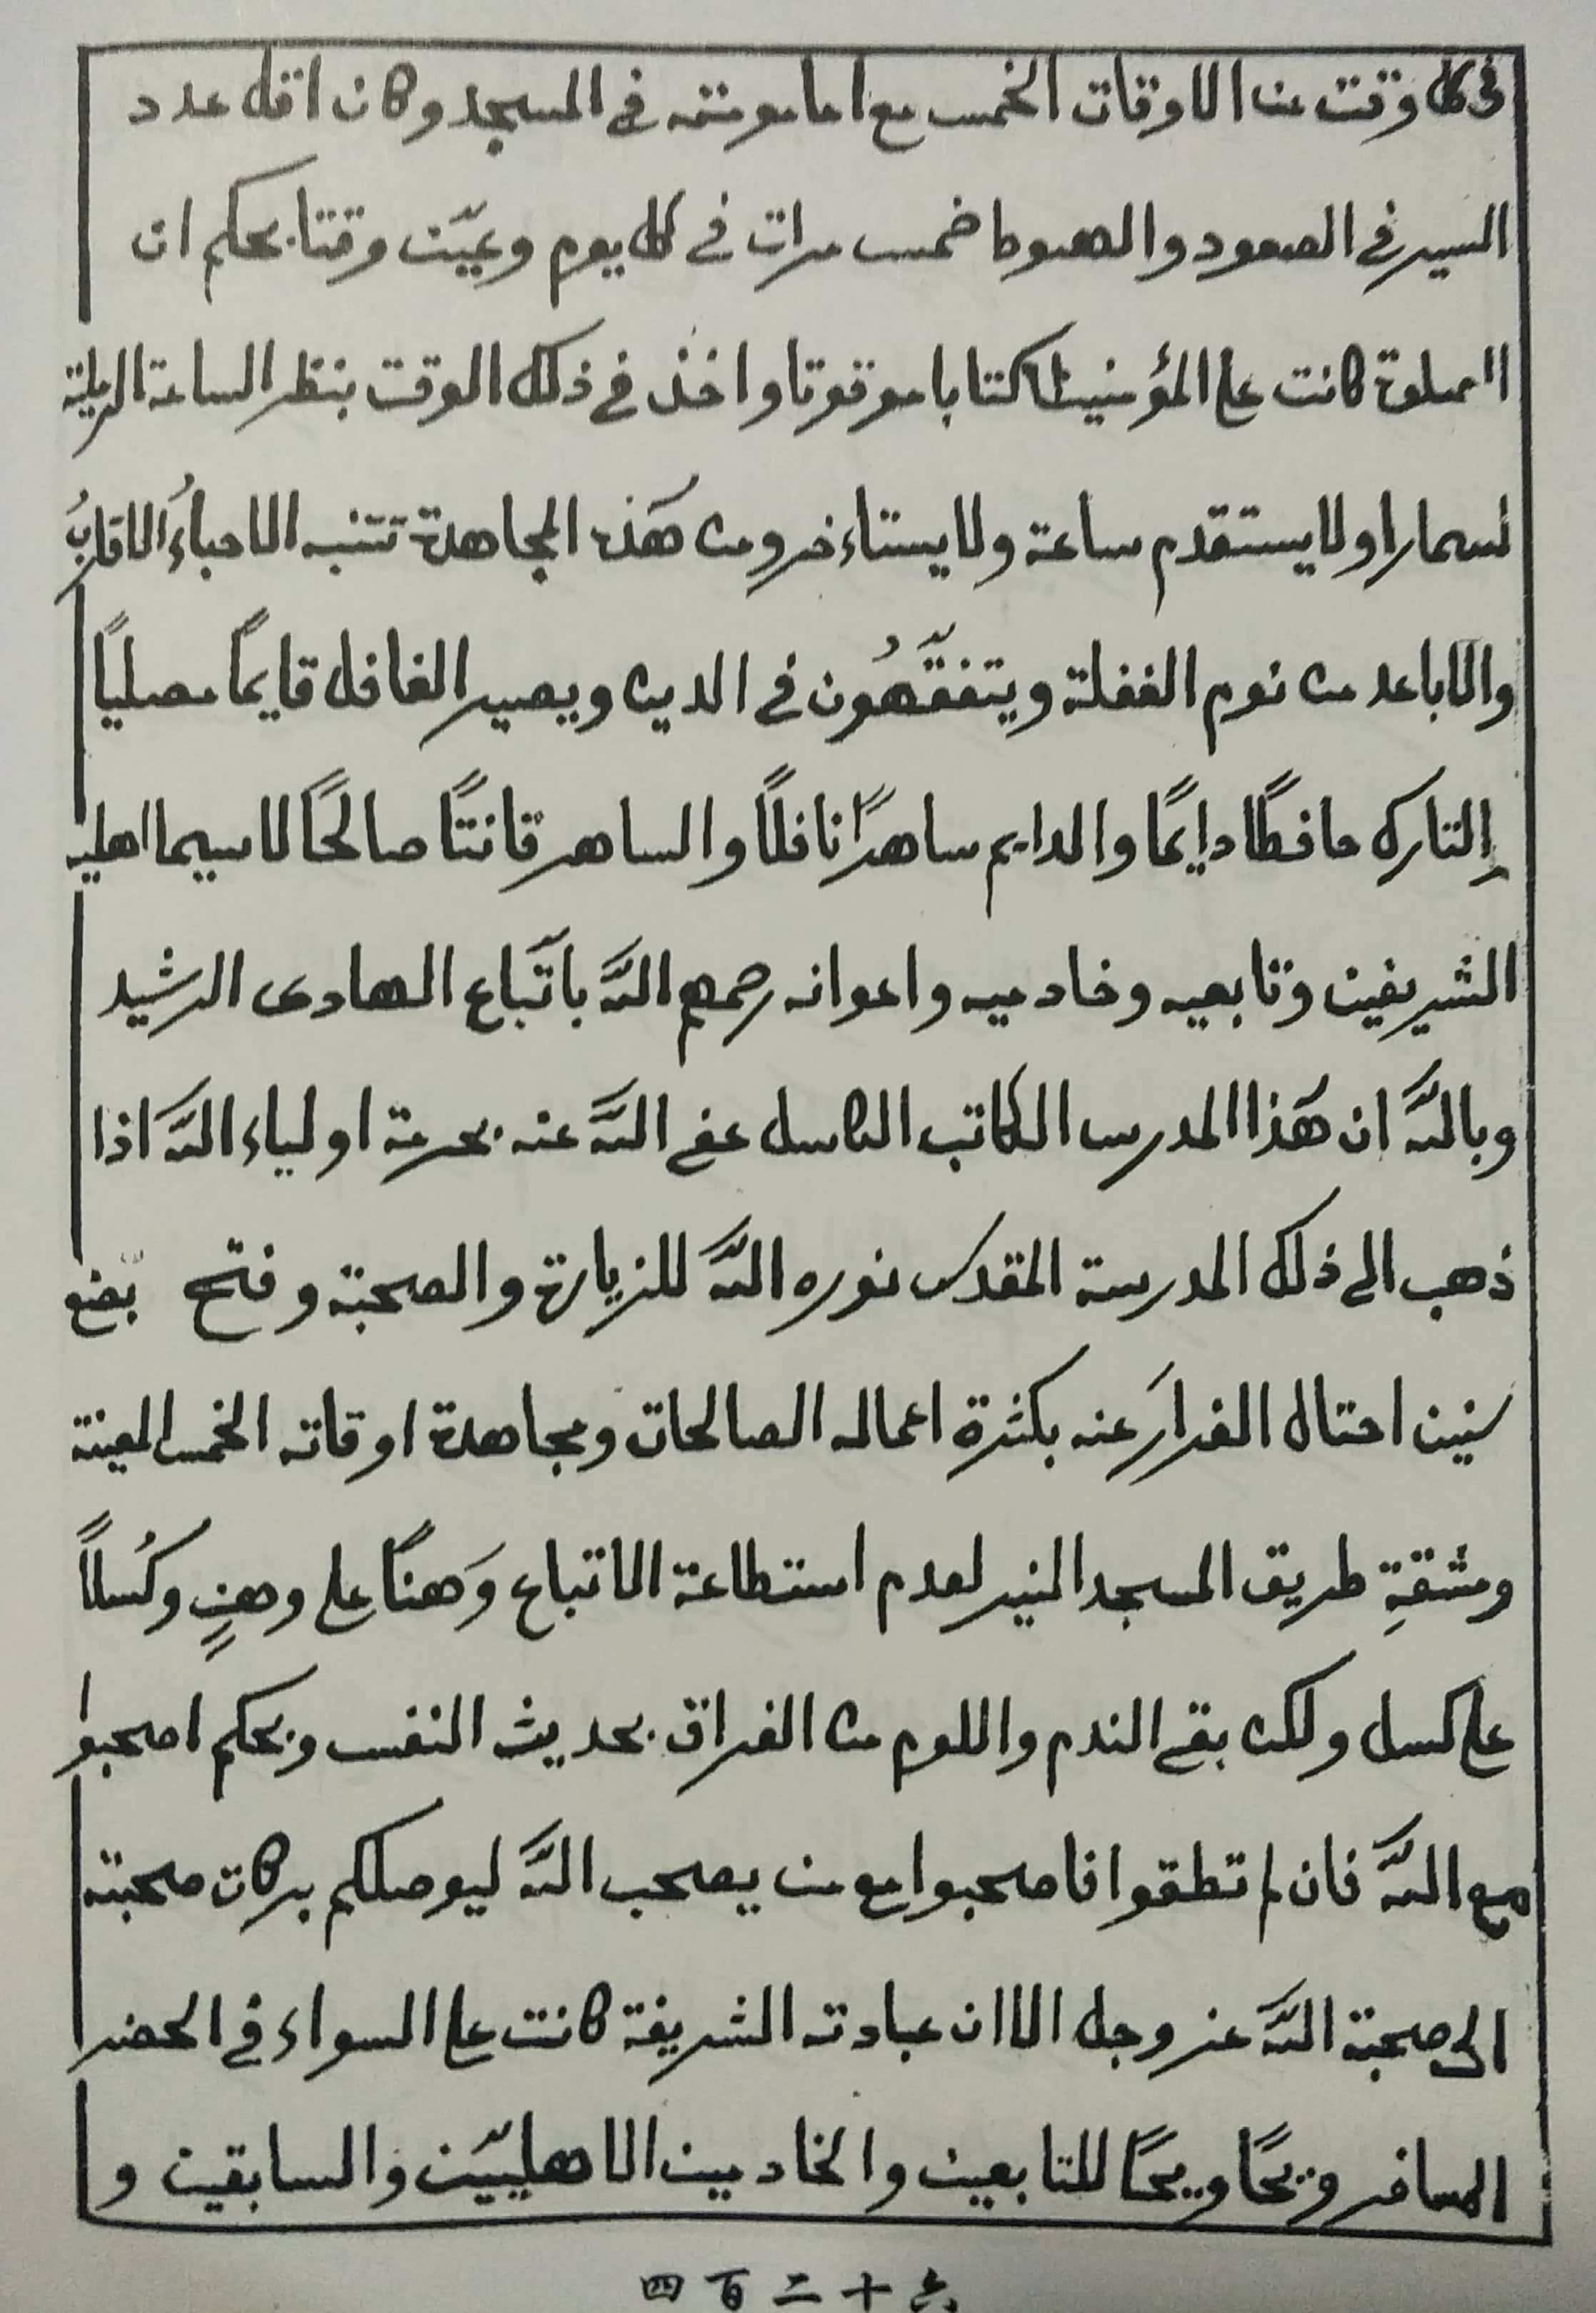 فى كل وقت من الاوقات الخمس مع امامومته في المسجد وكان اقل عدد
السير في الصعود والهبوط خمس مرات في كل يوم وعيّن وقتا بحكم ان
الصلوة كانت على المؤمنين كتابا موقوتا واخذ في ذلك الوقت بنظر الساعة الرملية
لسمارا ولا يستقدم ساعة ولا يستاءخر ومن هذه المجاهدة تتنبه الاحباءُ الاقاربُ
والاباعد من نوم الغفلة ويتفقّهُون في الدين ويصير الغافل قايمًا مصليًا
التارك حافظًا دايمًا والدايم ساهرًا نافلًا والساهر قانتًا صالحًا لاسيما اهليه
الشريفين وتابعيه وخادميه واعوانه رحمهم اللّه باتّباع الهادى الرشيد
وباللّه ان هذا المدرس الكاتب الكاسل عفى اللّه عنه بحرمة اولياء اللّه اذا
ذهب الى ذلك المدرسة المقدس نوره اللّه للزيارة والصحبة وفتح بضع
سنين احتال الفرارَ عنه بكثرة اعماله الصالحات ومجاهدة اوقاته الخمس المعينة
ومشقةِ طريق المسجد المنير لعدم استطاعة الاتباع وَهنًا على وهنٍ وكُسلًا
على كسل ولكن بقى الندم واللوم من الفراق بحديث النفس وبحكم اصحبوا
مع اللّه فان لم تطقوا فاصحبوا مع من يصحب اللّه ليوصلكم بركات صحبته
الى صحبة اللّه عز وجل الا ان عبادته الشريفة كانت على السواء في الحضر
المسافر ويحًا ويحًا للتابعين والخادمين الاهليّين والسابقين و
四百二十六